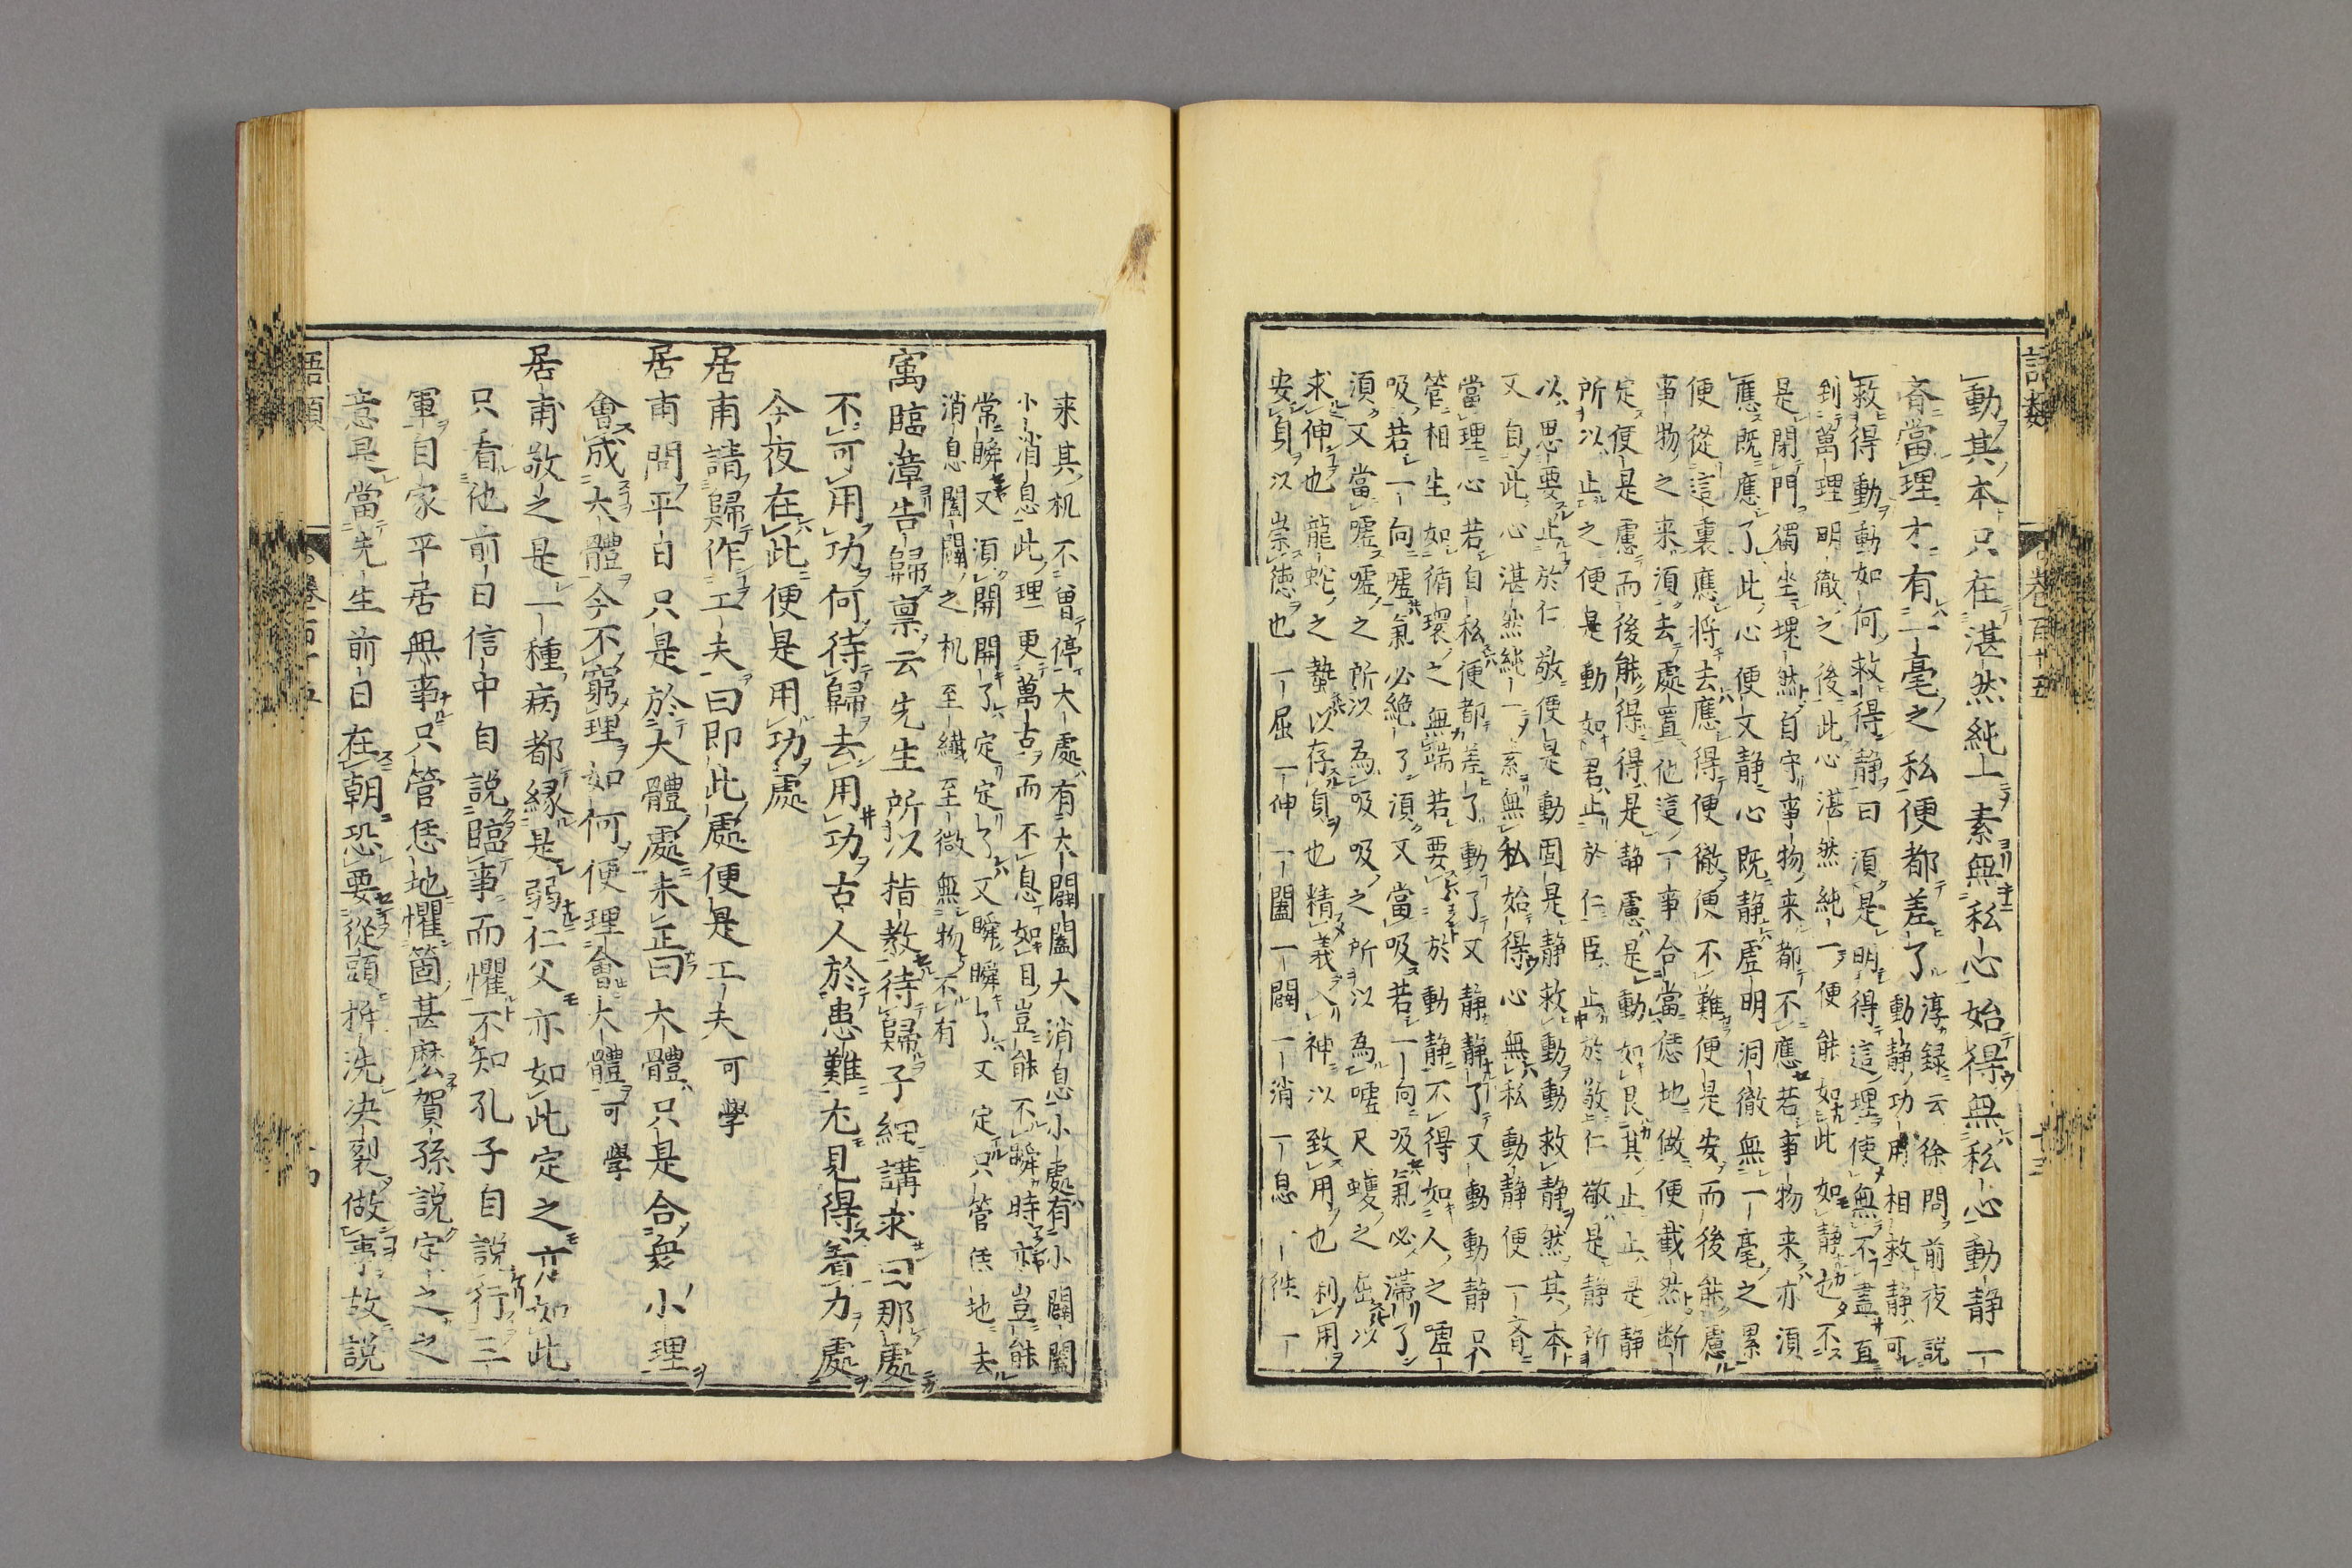 語類
卷百十五
十三
動其本只在湛然純一素無私心始得無私心動静一
齊當理才有一毫之私便都差了淳録云徐問前夜説動静功用相救静可
救得動動如何救得静曰須是明得這理使無不盡直
到萬理明徹之後此心湛然純一便能如此如静也不
是閉門獨坐塊然自守事物来都不應若事物来亦須
應既應了此心便又静心既静虚明洞徹無一毫之累
便從這裏應将去應得便徹便不難便是安而後能慮
事物之来須去處置他這一事合當恁地做便截然断
定便是慮而後能得得是静慮是動如艮其止止是静
所以止之便是動如君止於仁臣止於敬仁敬是静所
以思要止於仁敬便是動固是静救動動救静然其本
又自此心湛然純一素無私始得心無私動静便一齊
當理心若自私便都差了動了又静静了又動動静只
管相生如循環之無端若要於動静不得如人之嘘
吸若一向嘘氣必絶了須又當吸若一向吸氣必滯了
須又當嘘嘘之所以為吸吸之所以為嘘尺蠖之屈以
求伸也龍蛇之蟄以存身也精義入神以致用也利用
安身以崇徳也一屈一伸一闔一闢一消一息一往一
来其机不曽停大處有大闢闔大消息小處有小闢闔
小消息此理更萬古而不息如目豈能不瞬時亦豈能
常瞬又須開開了定定了又瞬瞬了又定只管恁地去
消息闔闢之机至纎至微無物不有
寓臨漳告歸禀云先生所以指教待歸子細講求曰那處
不可用功何待歸去用功古人於患難尤見得着力處
今夜在此便是用功處
居甫請歸作工夫曰即此處便是工夫可學
居甫問平日只是於大體處未正曰大體只是合衆小理
會成大體今不窮理如何便理會大體可學
居甫敬之是一種病都縁是弱仁父亦如此定之亦如此
只看他前日信中自説臨事而懼不知孔子自説行三
軍自家平居無事只管恁地懼箇甚麽賀孫説定之之
意是當先生前日在朝恐要從頭拆洗决裂做事故説
語類
卷一百十五
十四